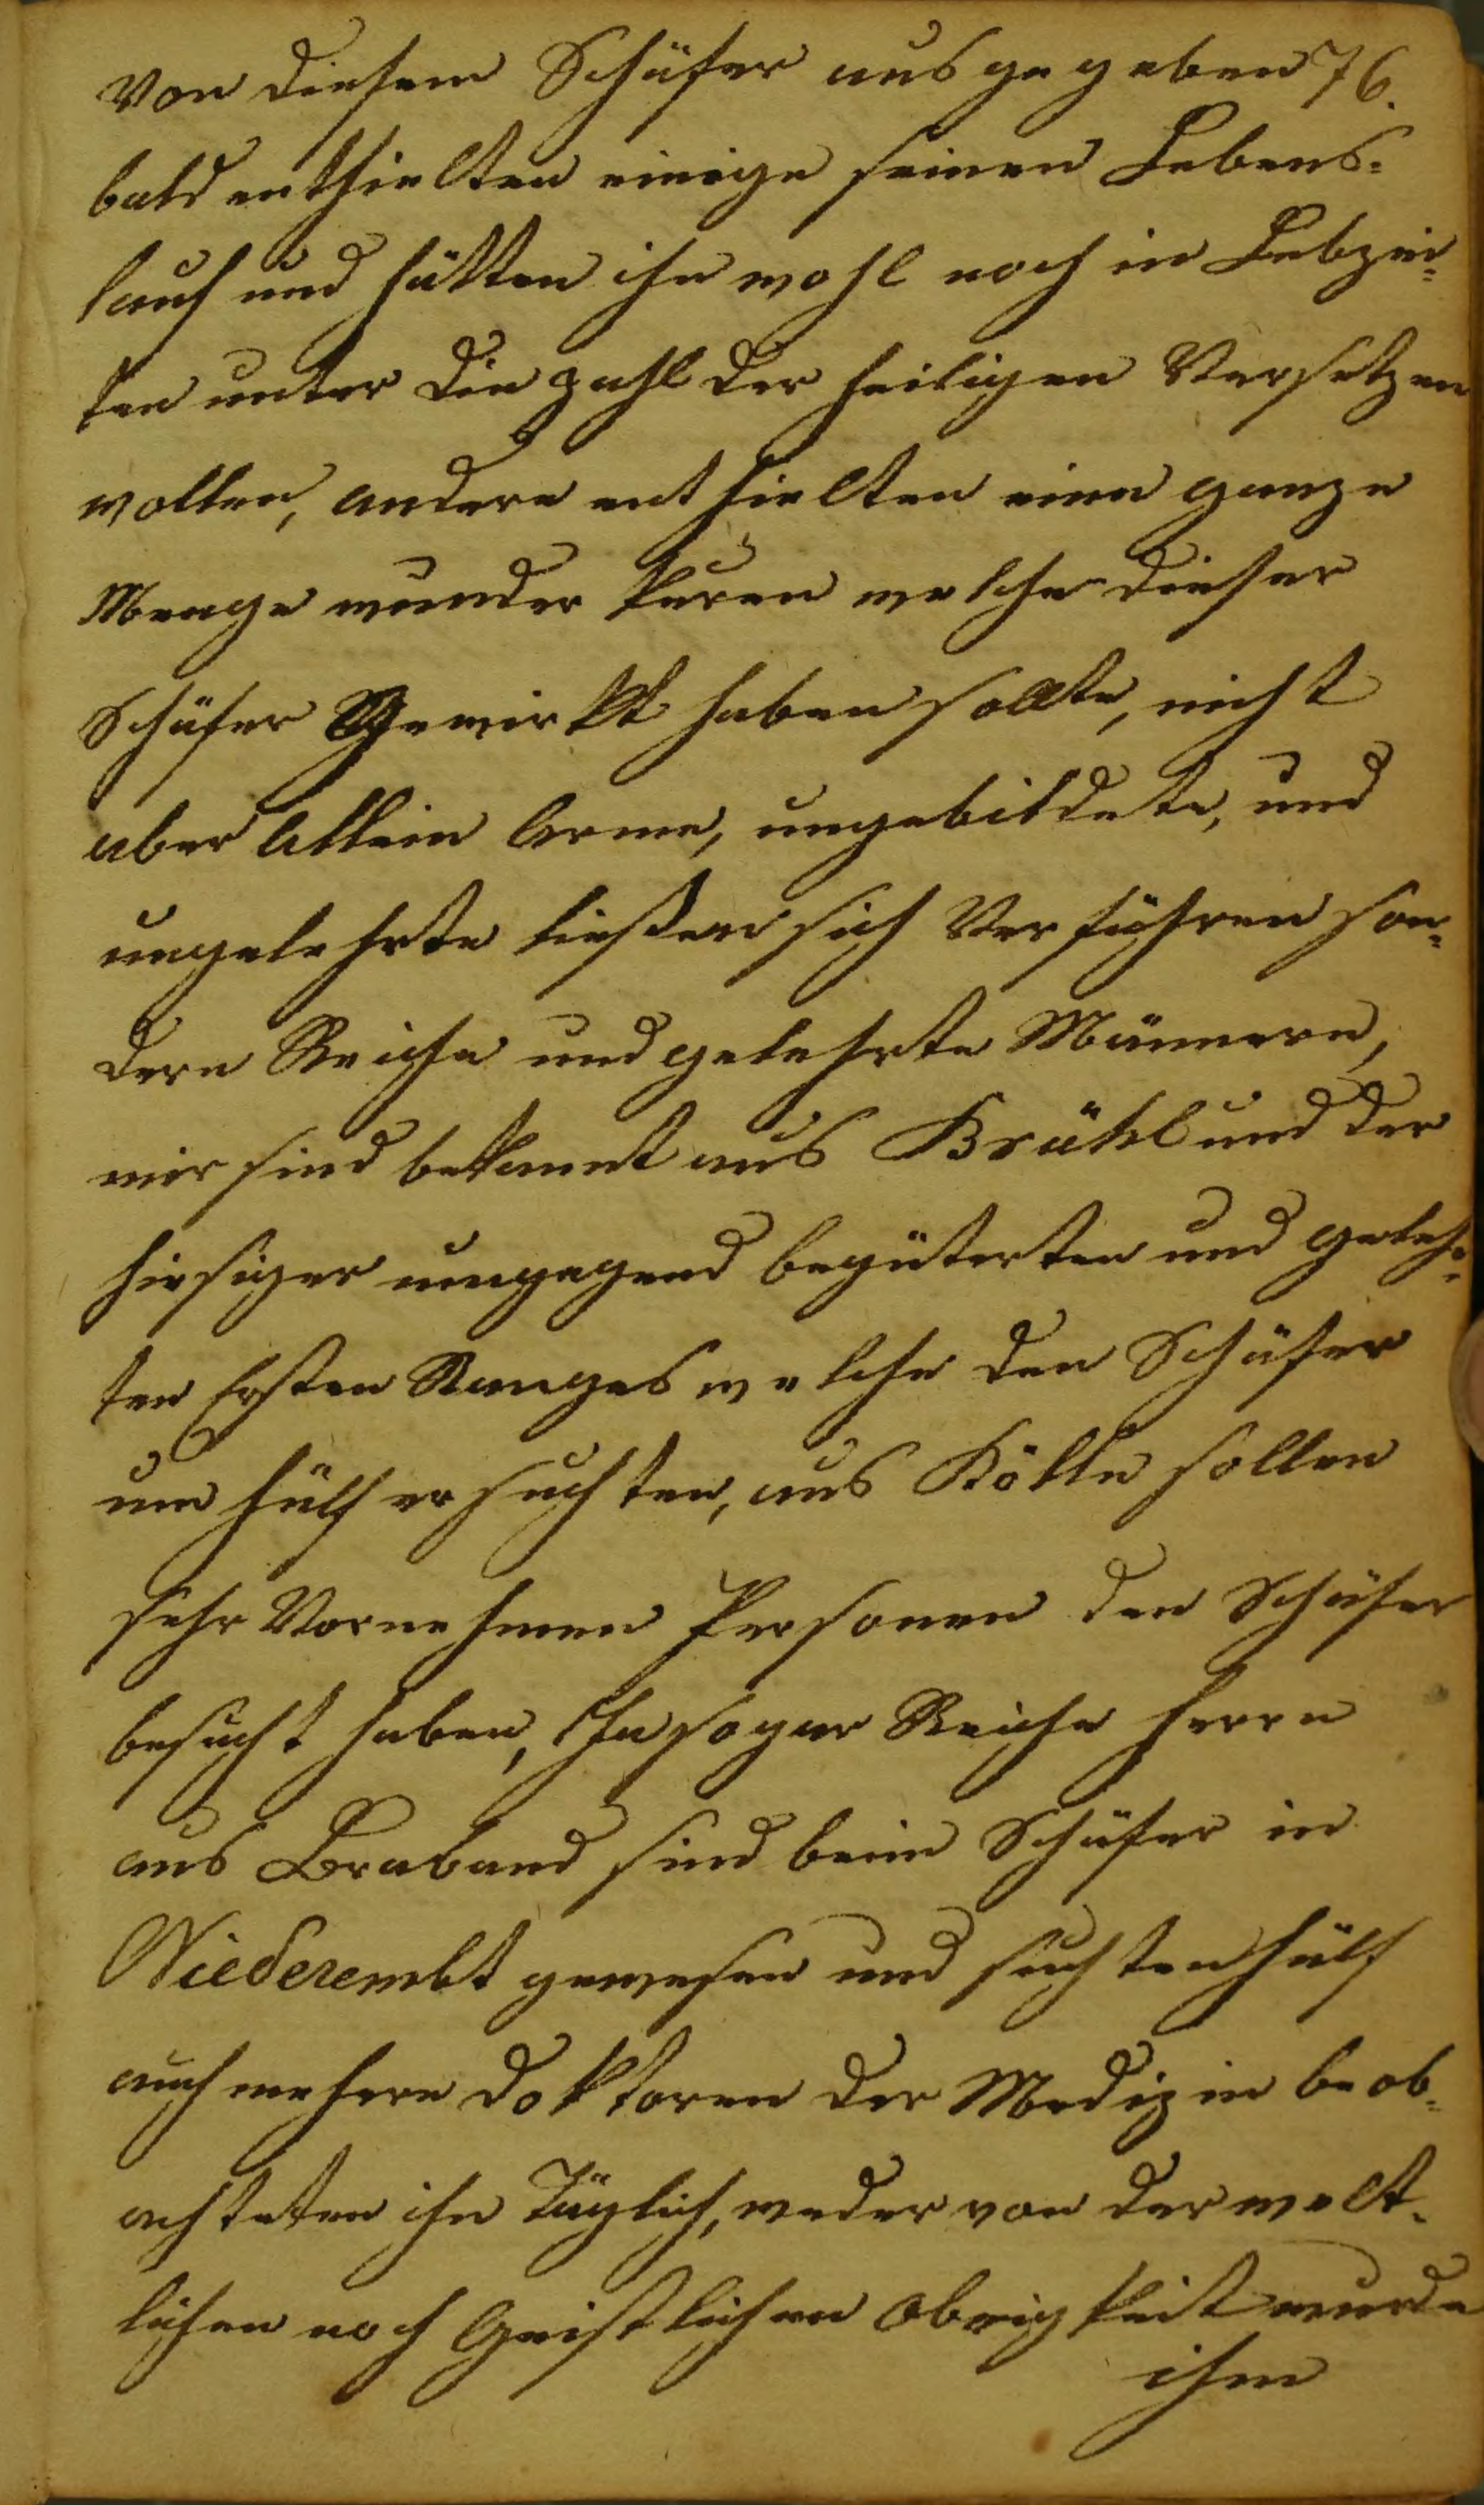 Von diesem Schäfer ausgegeben 76.
bald enthielten einige seinen Lebens-
lauf und hätten ihn wohl noch in Lebzei-
ten unter die zahl der heiligen Versetzen
wollen, andere enthielten eine ganze
Menge wunder kuren welche dieser
Schäfer Gewirkt haben sollte, nicht
aber Allein Arme, ungebildete, und
ungelehrte ließen sich Verführen son-
dern Reiche und gelehrte Männern,
mir sind bekannt aus Brühl und der
hiesiger umgegend begüterten und gelehr-
ten Ersten Ranges welche den Schäfer
um hülf ersuchten, aus Kölln sollen
sehr Vornehmen Personen den Schäfer
besucht haben, Ja sogar Reiche Herrn
aus Braband sind beim Schäfer in
Niederembt gewesen und suchten hülf
auch mehere doktoren der Medizin beob-
achteten ihn Täglich, weder von der welt-
lichen noch Geistlichen Obrigkeit wurde
ihm